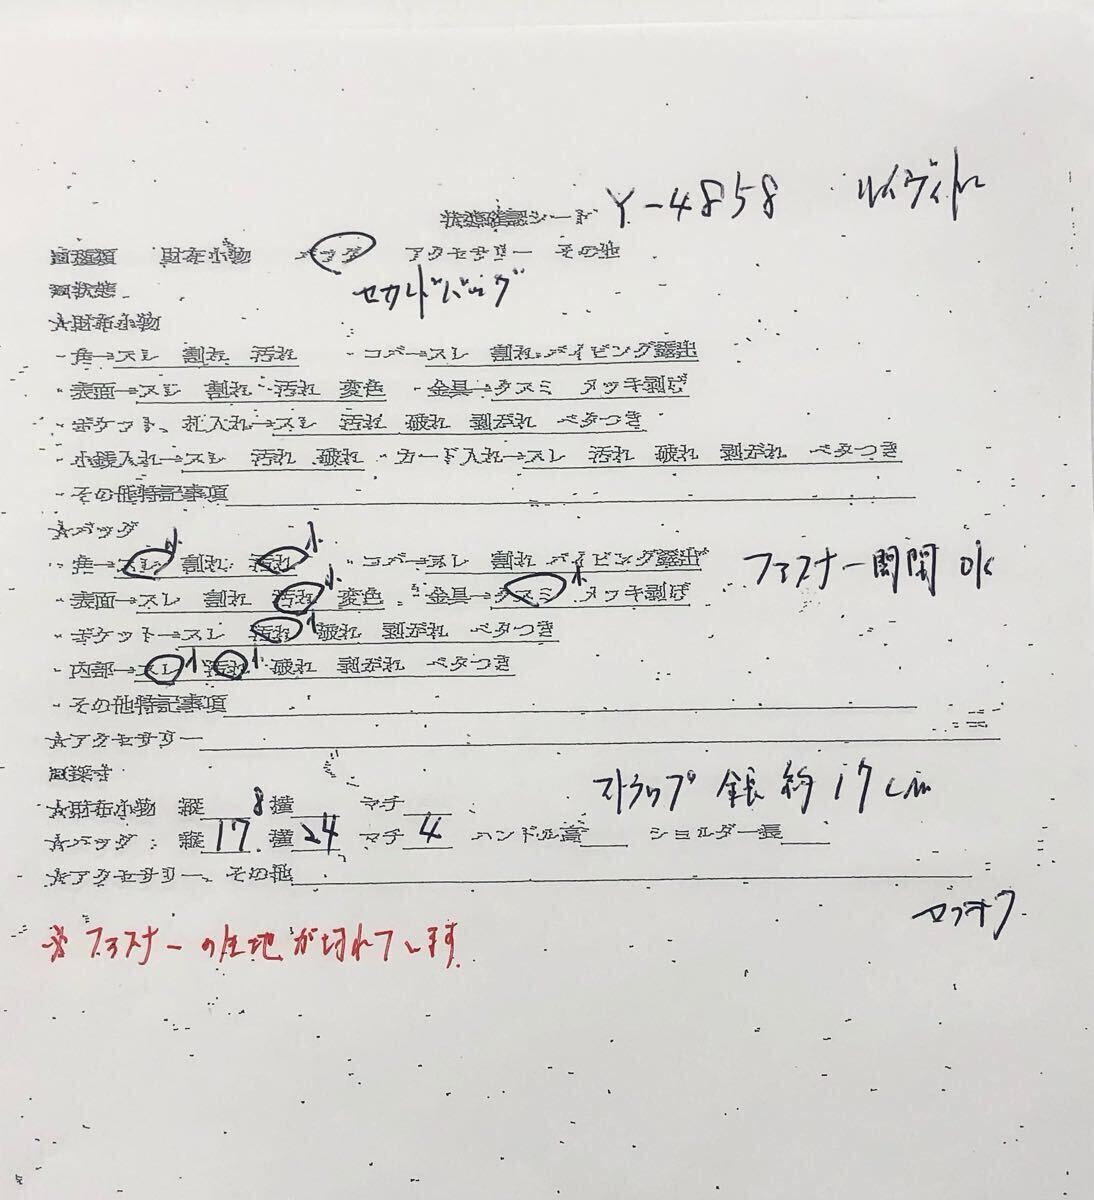 状態確認シート Y-4858 ルイヴィトン
□種類 財布小物 バッグ アクセサリー その他
□状態 セカンドバッグ
★財布小物
・角→スレ 割れ 汚れ ・コバ→スレ 割れ パイピング露出
・表面→スレ 割れ 汚れ 変色 ・金具→クスミ メッキ剥げ
・ポケット、札入れ→スレ 汚れ 破れ 剥がれ ベタつき
・小銭入れ→スレ 汚れ 破れ ・カード入れ→スレ 汚れ 破れ 剥がれ ベタつき
・その他特記事項
★バッグ
・角→スレ 小 割れ 汚れ 小 ・コバ→スレ 割れ パイピング露出
ファスナー開閉 OK
・表面→スレ 割れ 汚れ 小 変色 ・金具→クスミ 小 メッキ剥げ
・ポケット→スレ 汚れ 小 破れ 剥がれ ベタつき
・内部→スレ 小 汚れ 小 破れ 剥がれ ベタつき
・その他特記事項
★アクセサリー
□採寸
ストラップ 全長 約17cm
★財布小物 縦 8 横 マチ
★バッグ 縦 17 横 24 マチ 4 ハンドル高 ショルダー長
★アクセサリー、その他
※ファスナーの生地が切れています